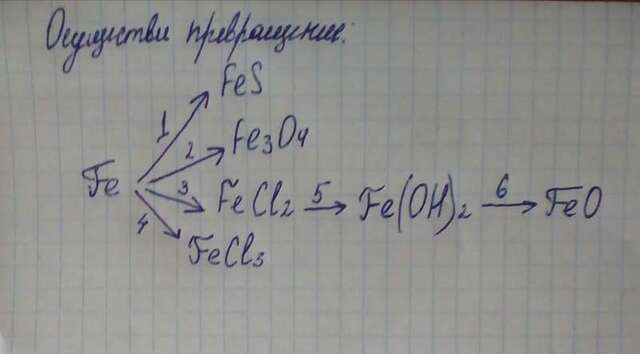 Осуществи превращение:
FeS
1
2 Fe3O4
Fe 3 FeCl2 5 Fe(OH)2 6 FeO
4
FeCl3